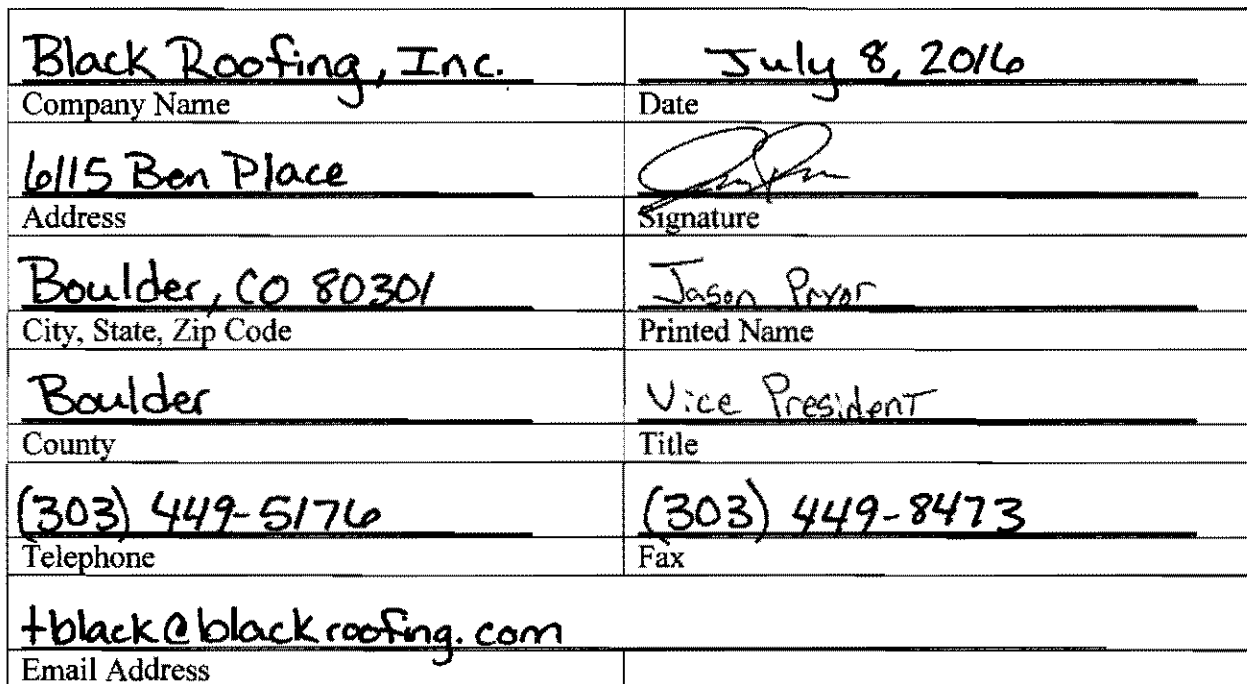 Black Roofing, Inc. July 8, 2016
Company Name Date
6115 Ben Place
Address Signature
Boulder, CO 80301 Jason Pryor
City, State, Zip Code Printed Name
Boulder Vice President
County Title
(303) 449-5176 (303) 449-8473
Telephone Fax
tblack@blackroofing.com
Email Address